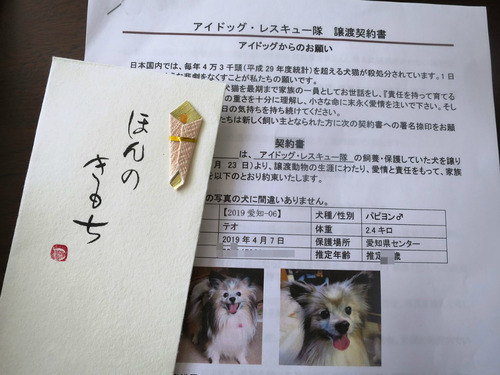 アイドッグ・レスキュー隊 譲渡契約書
アイドッグからのお願い
日本国内では、毎年4万3千頭(平成29年度統計)を超える犬猫が殺処分されています。1日
な悲劇をなくすことが私たちの願いです。
犬猫を最期まで家族の一員としてお世話をし、『責任を持って育てる
の重さを十分に理解し、小さな命に末永く愛情を注いで下さい。そし
日の気持ちを持ち続けてください。
たちは新しく飼い主となられた方に次の契約書への署名捺印をお願
契約書
は、アイドッグ・レスキュー隊の飼養・保護していた犬を譲り
月 23 日)より、譲渡動物の生涯にわたり、愛情と責任をもって、家族
を以下のとおり約束いたします。
の写真の犬に間違いありません。
【2019愛知-06】 犬種/性別 パピヨン♂
テオ 体重 2.4キロ
2019年4月7日 保護場所 愛知県センター
推定年齢 推定 歳
ほんの
きもち